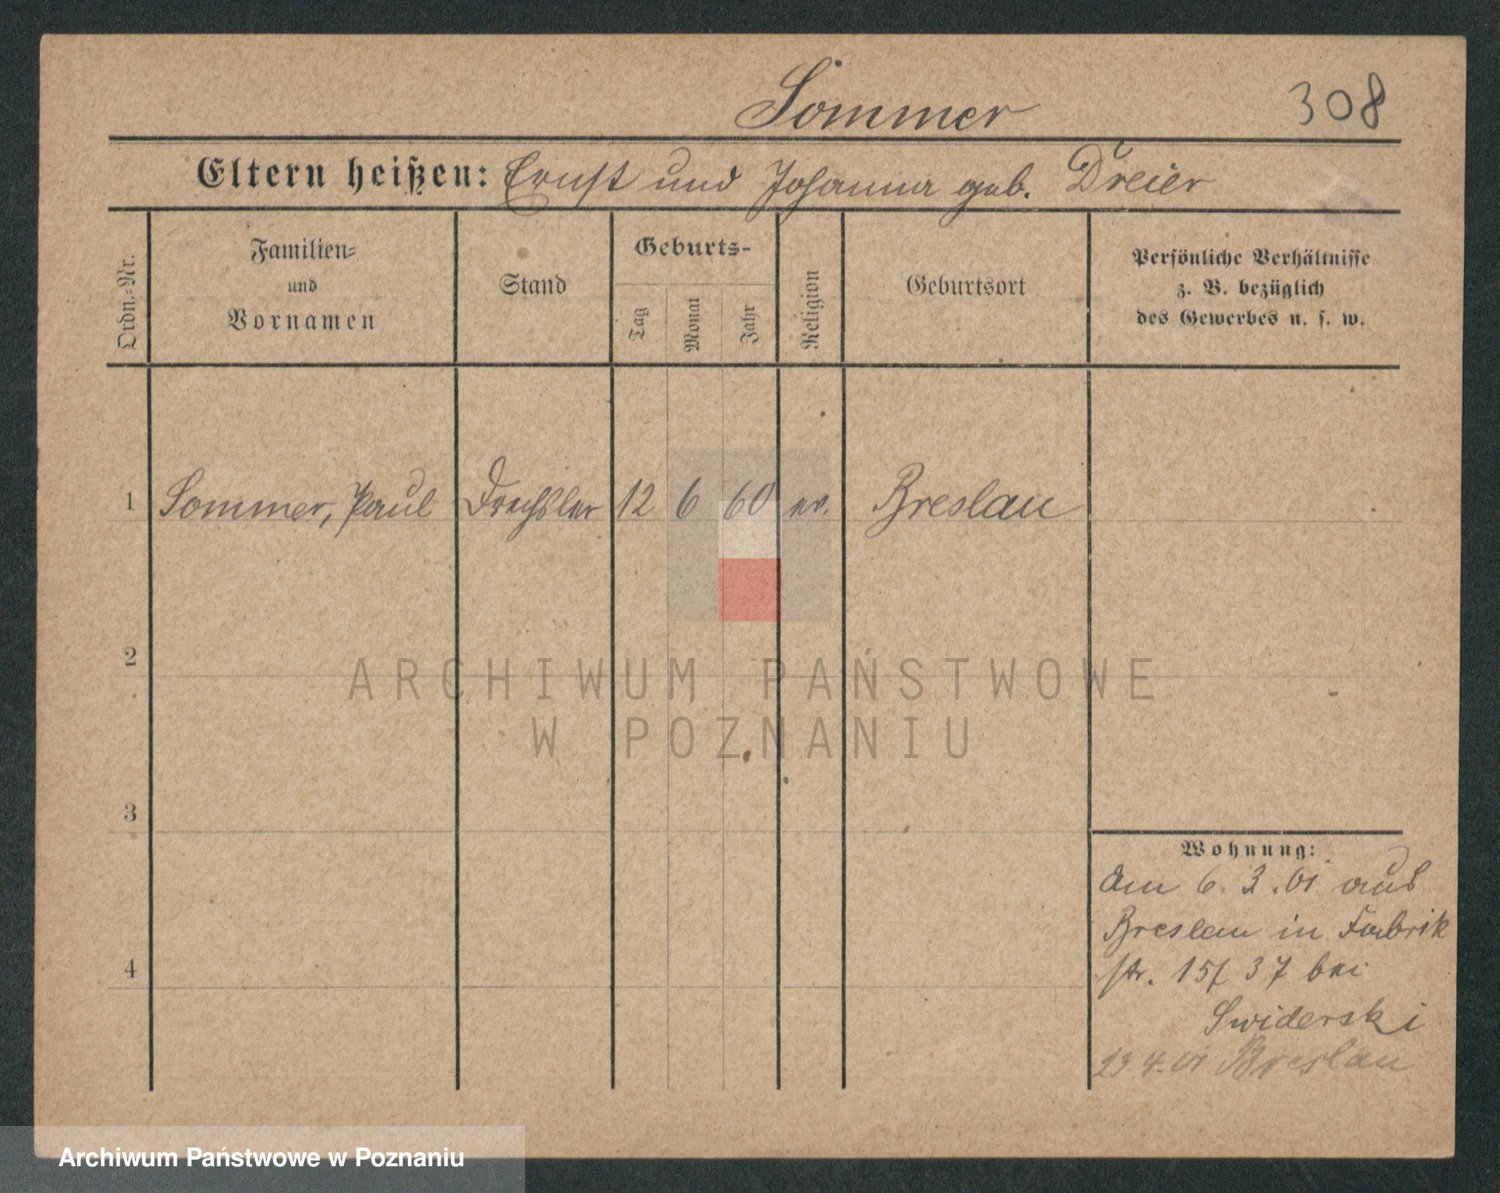 Sommer 308
Eltern heißen: Ernst und Johanna geb. Dreier
Ordn.-Nr.
Familien-
und
Vornamen
Stand
Geburts-
Tag
Monat
Jahr
Religion
Geburtsort
Persönliche Verhältnisse
z. B. bezüglich
des Gewerbes u. s. w.
1 Sommer, Paul Drechsler 12 6 60 ev. Breslau
2
ARCHIWUM PAŃSTWOWE
W POZNANIU
3
Wohnung:
Am 6. 3. 01 aus
Breslau in Fabrik
str. 15/37 bei
4
Swiderski
23.4.01 Breslau
Archiwum Państwowe w Poznaniu